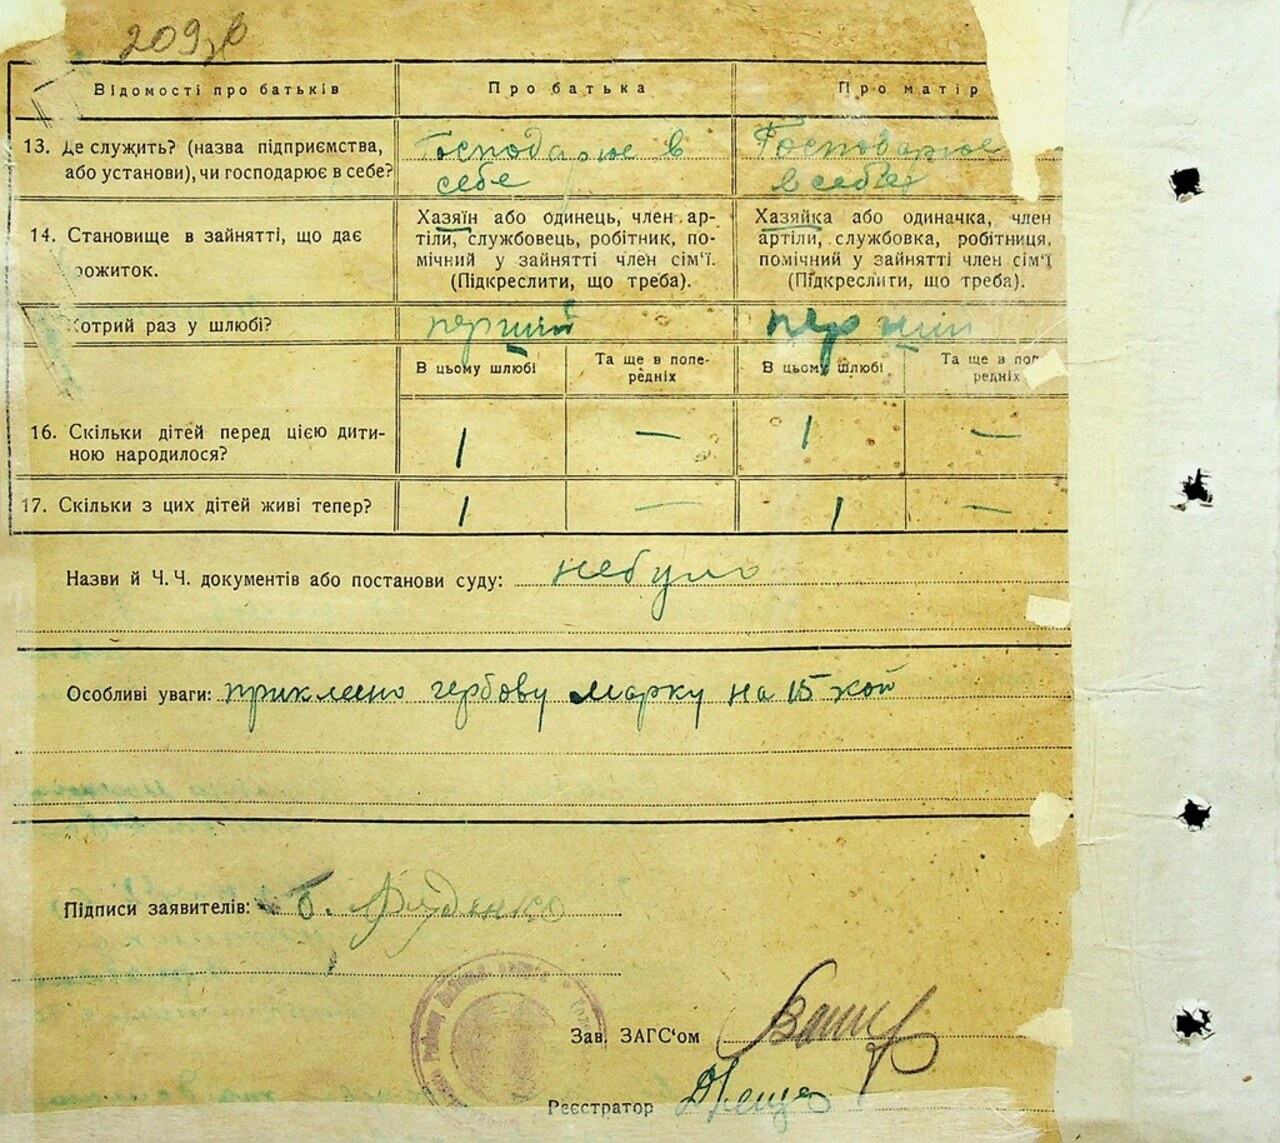 209зв
Відомості про батьків
Про батька
Про матір
13. Де служить? (назва підприємства,
або установи), чи господарює в себе?
Господарює в
себе
Господарює
в себе
14. Становище в зайнятті, що дає
рожиток.
Хазяїн або одинець, член ар-
тіли, службовець, робітник, по-
мічний у зайнятті член сім'ї.
(Підкреслити, що треба).
Хазяйка або одиначка, член
артіли, службовка, робітниця,
помічний у зайнятті член сім'ї
(Підкреслити, що треба).
Котрий раз у шлюбі?
перший
перший
В цьому шлюбі
Та ще в попе-
редніх
В цьому шлюбі
Та ще в поп
редніх
16. Скільки дітей перед цією дити-
ною народилося?
1
—
1
—
17. Скільки з цих дітей живі тепер?
1
—
1
—
Назви й Ч. Ч. документів або постанови суду: небуло
Особливі уваги: приклеено гербову марку на 15 коп
Підписи заявителів:
Зав. ЗАГС'ом
Реєстратор